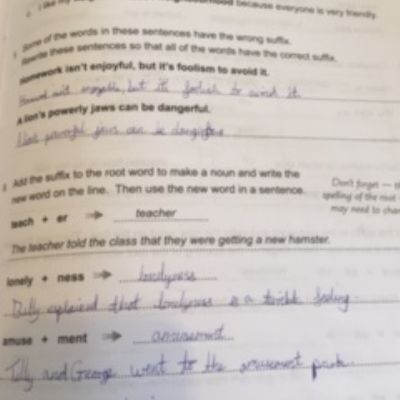 because everyone is very friendly.
Some of the words in these sentences have the wrong suffix.
Rewrite these sentences so that all of the words have the correct suffix.
Homework isn't enjoyful, but it's foolism to avoid it.
but it's foolish to avoid it.
A lion's powerly jaws can be dangerful.
A lion's powerful jaws can be
Add the suffix to the root word to make a noun and write the
new word on the line. Then use the new word in a sentence.
Don't forget — 
spelling of the root
may need to
teach + er ⇒ teacher
The teacher told the class that they were getting a new hamster.
lonely + ness ⇒ lonelyness
explained that lonelyness is a terrible feeling.
amuse + ment ⇒ amusement
Tilly and George went to the amusement park.